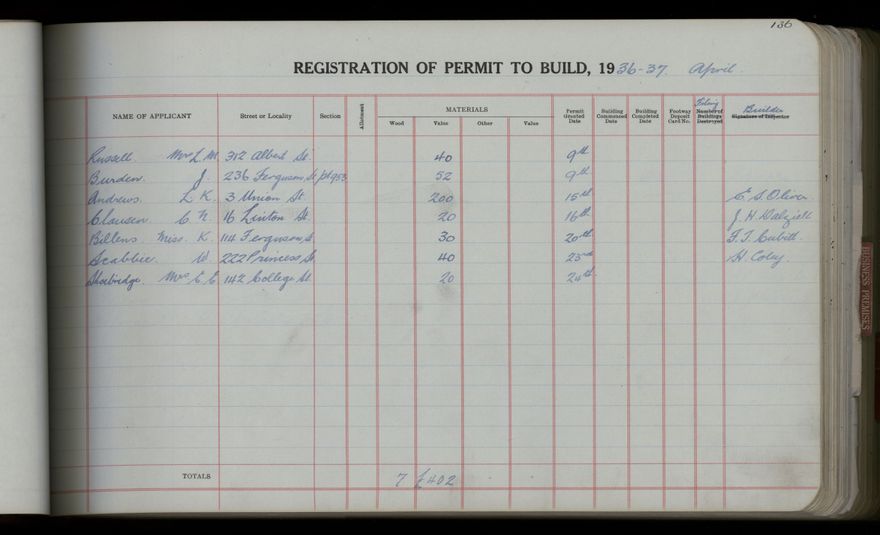 136
REGISTRATION OF PERMIT TO BUILD, 1936-37. April.
NAME OF APPLICANT Street or Locality Section Allotment MATERIALS Wood Value Other Value Permit Granted Date Building Commenced Date Building Completed Date Footway Deposit Card No. Number of Buildings Destroyed Builder Signature of Inspector
Russell. Mrs L. M. 312 Albert St. 40 9th
Burden. J. 236 Ferguson St pt 953 52 9th
Andrews. L. K. 3 Union St. 200 15th E. S. Oliver.
Clausen. C. N. 16 Linton St. 20 16th J. H. Dalziell
Billens. Miss. K. 114 Ferguson St. 30 20th F. T. Cubitt.
Scabbie. W. 222 Princess St. 40 23rd H. Coley.
Mrs E. E. 142 College St. 20 24th
TOTALS 7 £402
BUSINESS PREMISES